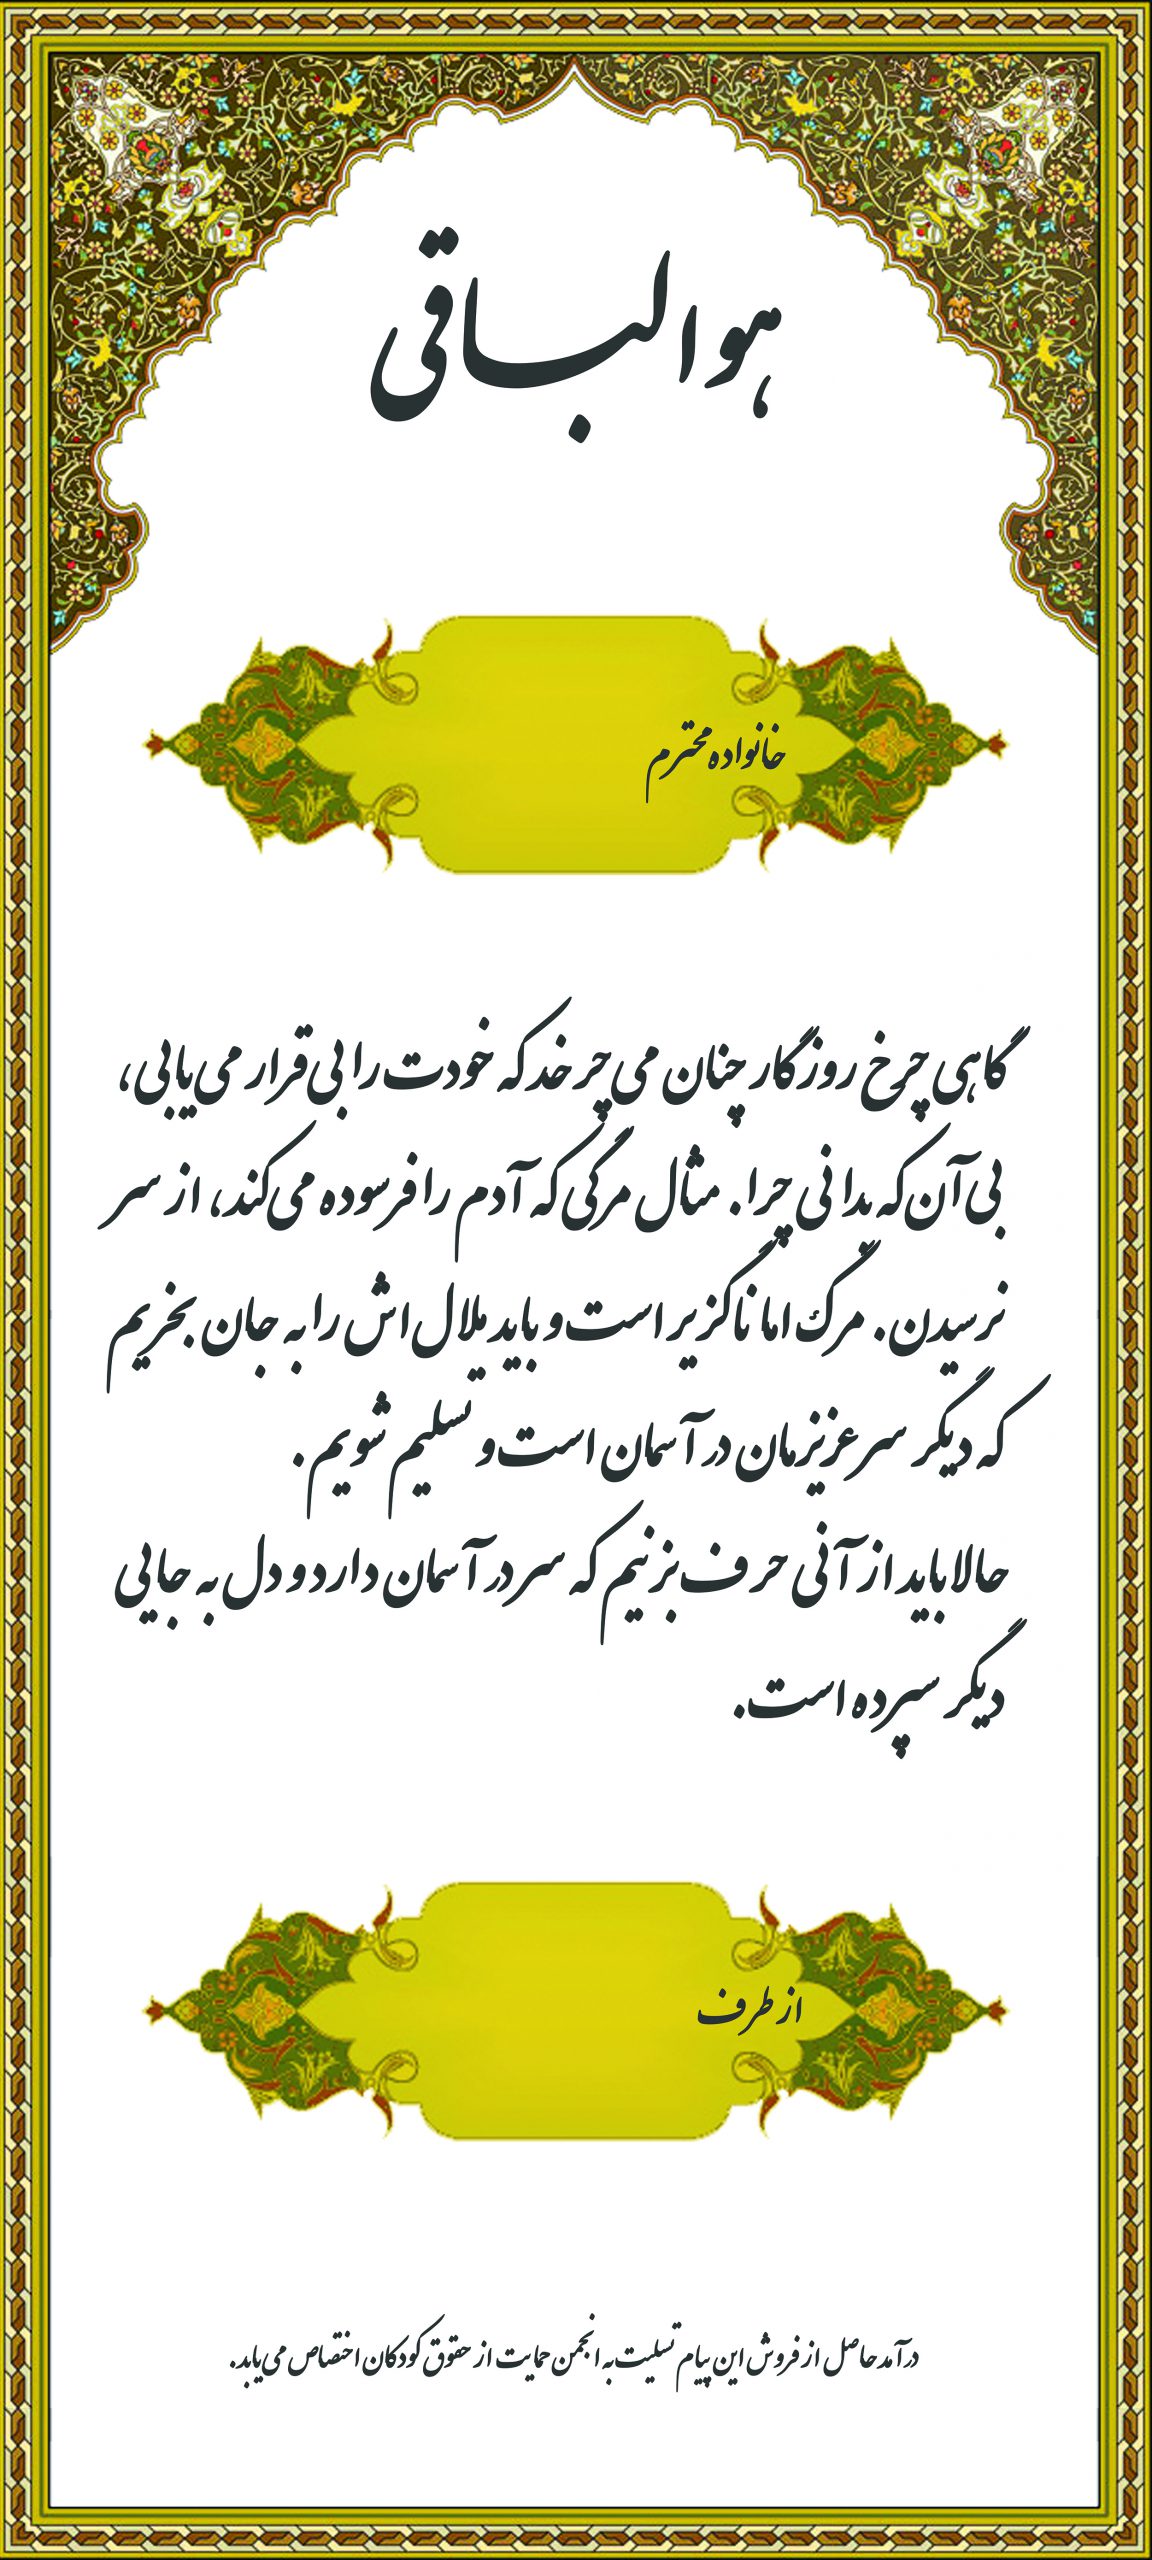 هوالباقی
خانواده محترم
گاهی چرخ روزگار چنان می‌چرخد که خودت را بی‌قرار می‌یابی،
بی‌آن‌که بدانی چرا. مثال مرگی که آدم را فرسوده می‌کند، از سر
نرسیدن. مرگ اما ناگزیر است و باید ملال‌اش را به جان بخریم
که دیگر سر عزیزمان در آسمان است و تسلیم شویم.
حالا باید از آنی حرف بزنیم که سر در آسمان دارد و دل به جایی
دیگر سپرده است.
از طرف
درآمد حاصل از فروش این پیام تسلیت به انجمن حمایت از حقوق کودکان اختصاص می‌یابد.